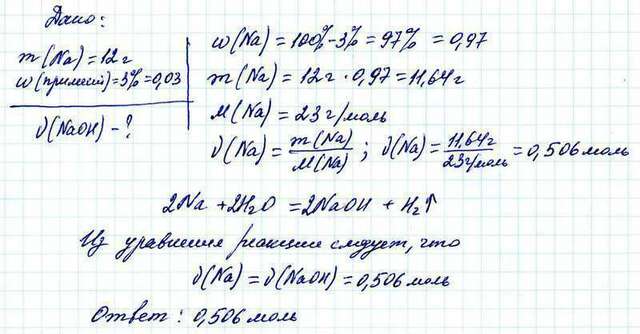 Дано:
m(Na)=12г
w(примесей)=3%=0,03
ν(NaOH)-?
w(Na)=100%-3%=97%=0,97
m(Na)=12г·0,97=11,64г
M(Na)=23г/моль
ν(Na)=m(Na)/M(Na); ν(Na)=11,64г/23г/моль=0,506моль
2Na+2H₂O=2NaOH+H₂↑
Из уравнения реакции следует, что
ν(Na)=ν(NaOH)=0,506моль
Ответ: 0,506моль